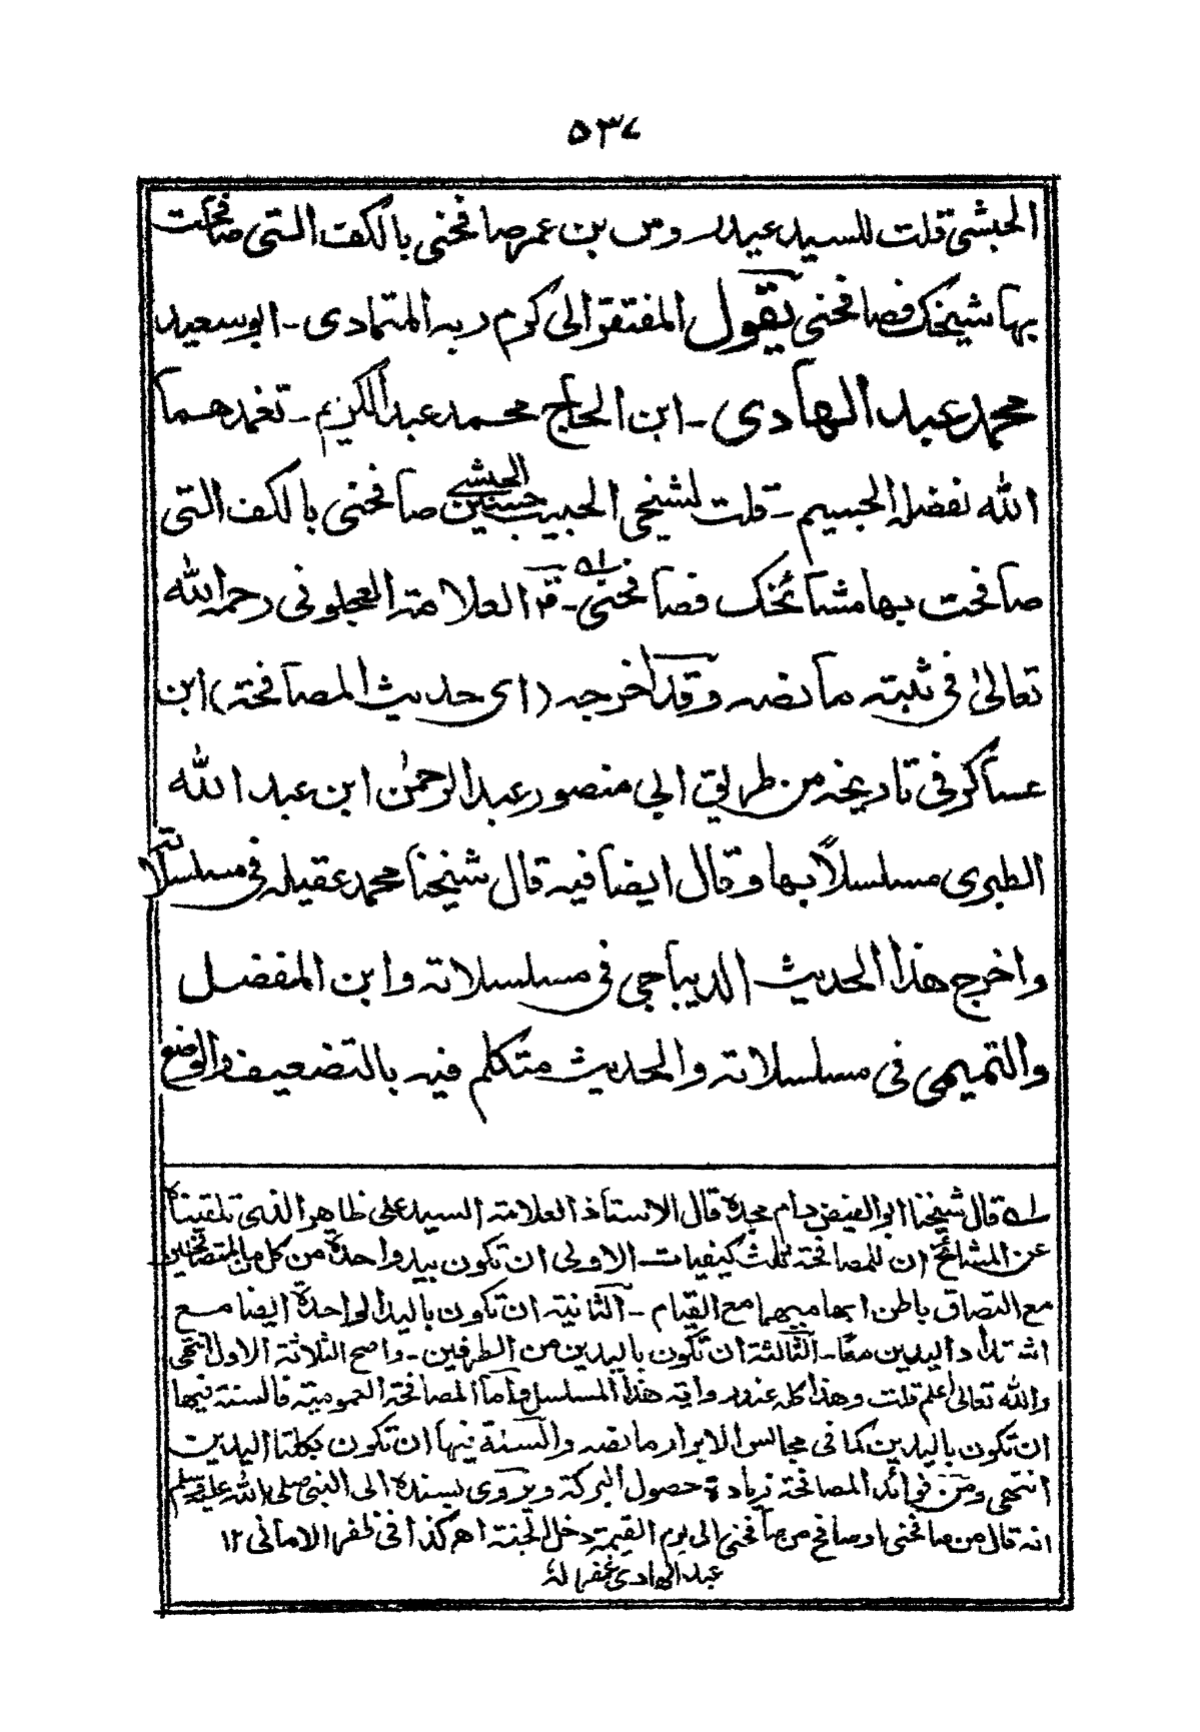 ٥٣٧
الحبشي قلت للسيد عيدروس بن عمر صافحني بالكف التي صافحت
بها شيخك فصافحني يقول المفتقر الى كرم ربه المتمادى - ابو سعيد
محمد عبد الهادى - ابن الحاج محمد عبد الكريم - تغمدهما
الله بفضله الجسيم - قلت لشيخي الحبيب حسين الحبشي صافحنى بالكف التى
صافحت بها مشائخك فصافحنى له - قال العلامة العجلونى رحمه الله
تعالىٰ فى ثبته ما نصه وقد اخرجه (اى حديث المصافحة) ابن
عساكر فى تاريخه من طريق ابي منصور عبد الرحمٰن ابن عبد الله
الطبرى مسلسلاً بها وقال ايضا فيه قال شيخنا محمد عقيله فى مسلسلاته
واخرج هذا الحديث الديباجي فى مسلسلاته وابن المفضل
والتميمى فى مسلسلاته والحديث متكلم فيه بالتضعيف والوضع
له قال شيخنا ابو الفيض دام مجده قال الاستاذ العلامة السيد على ظاهر الذى تلقيناه
عن المشائخ ان للمصافحة ثلث كيفيات - الاولى ان تكون بيد واحدة من كل من المتصافحين
مع التصاق باطن ابهاميهما مع القيام - الثانية ان تكون باليد الواحدة ايضا مع
اشتداد اليدين معًا - الثالثة ان تكون باليدين من الطرفين - واصح الثلاثة الاول انتهى
والله تعالى اعلم قلت وهذا كله عند رواية هذا المسلسل واما المصافحة العمومية فالسنة فيها
ان تكون باليدين كما فى مجالس الابرار ما نصه والسنة فيها ان تكون بكلتا اليدين
انتهى ومن فوائد المصافحة زيادة حصول البركة ويروى بسنده الى النبى صلى الله عليه وسلم
انه قال من صافحنى او صافح من صافحنى الى يوم القيمة دخل الجنة اهـ كذا فى ظفر الامانى ١٢
عبد الهادى غفر لهٗ